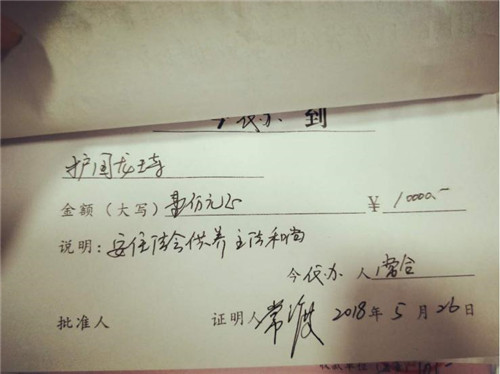 今代办 到
护国龙王寺
金额（大写）壹万元正 ￥ 10000.-
说明：安住法会供养主法和尚
今代办 人 常合
批准人 证明人 常渡 2018年5月26日